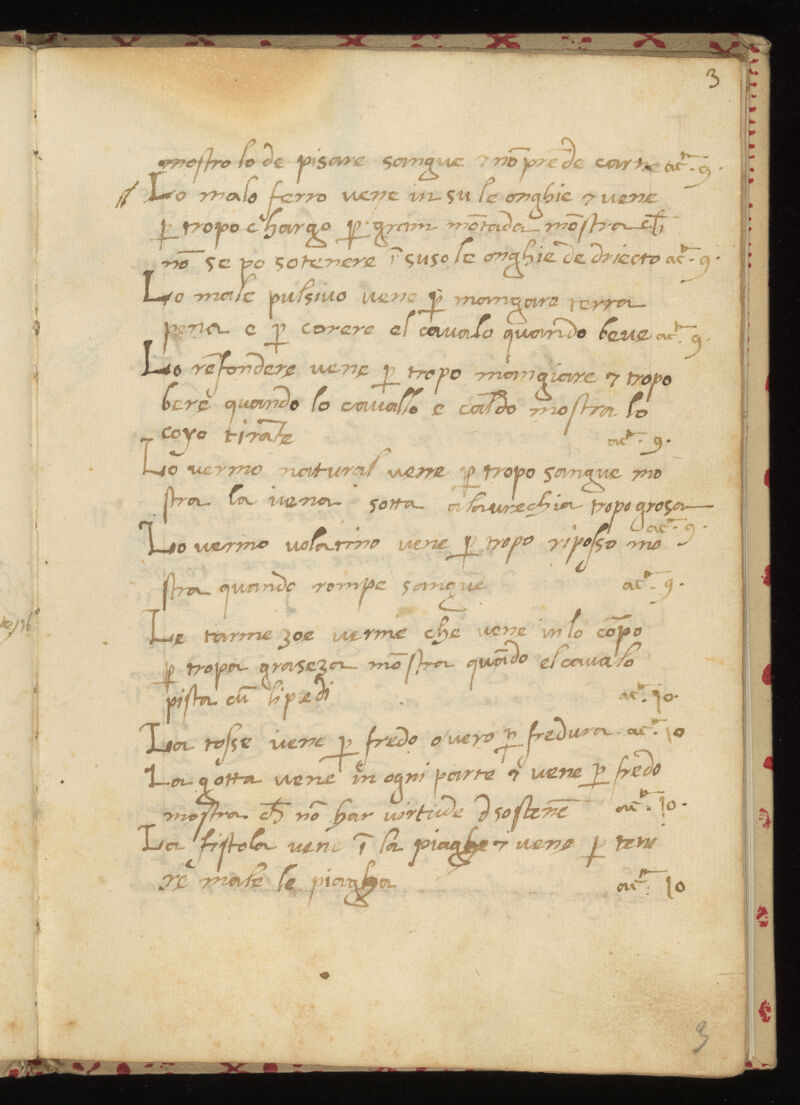 3
mostro lo de pisare sangue ⁊ nō prēde carne act̄. 9.
Lo malo ferro vene in su le onghie ⁊ vene
p̱ tropo chargo p̱ gram mōtada mōstra ch̄
nō se po sotenere ī suso le onghie de driecto act̄. 9.
Lo male pulsivo vene p̱ mangare terra
pena e p̱ corere el cavalo quando beve act̄. 9.
Lo rēfondere vene p̱ tropo māgiare ⁊ tropo
bere quando lo cavallo e caldo mostra lo
coyo tirate act̄. 9.
Lo vermo natural vene p̱ tropo sangue mo
stra la vena sotta a laurechia tropo grosa
act̄. 9.
Lo vermo volatino vene p̱ tropo riposso mo
stra quando rompe sangue act̄. 9.
Le tarme zoe verme che vene in lo cōpo
p̱ tropa graseza mōstra quādo el cavalo
pista cū li piedi act̄. 10.
La tosse vene p̱ fredo overo p̱ fredura act̄. 10
La gotta vene in ogni parte ⁊ vene p̱ fredo
mostra ch̄ nō har virtude d sostenē act̄. 10.
La fistola vene ī la piaghe ⁊ vene p̱ teni
re male le piagha act̄. 10
3